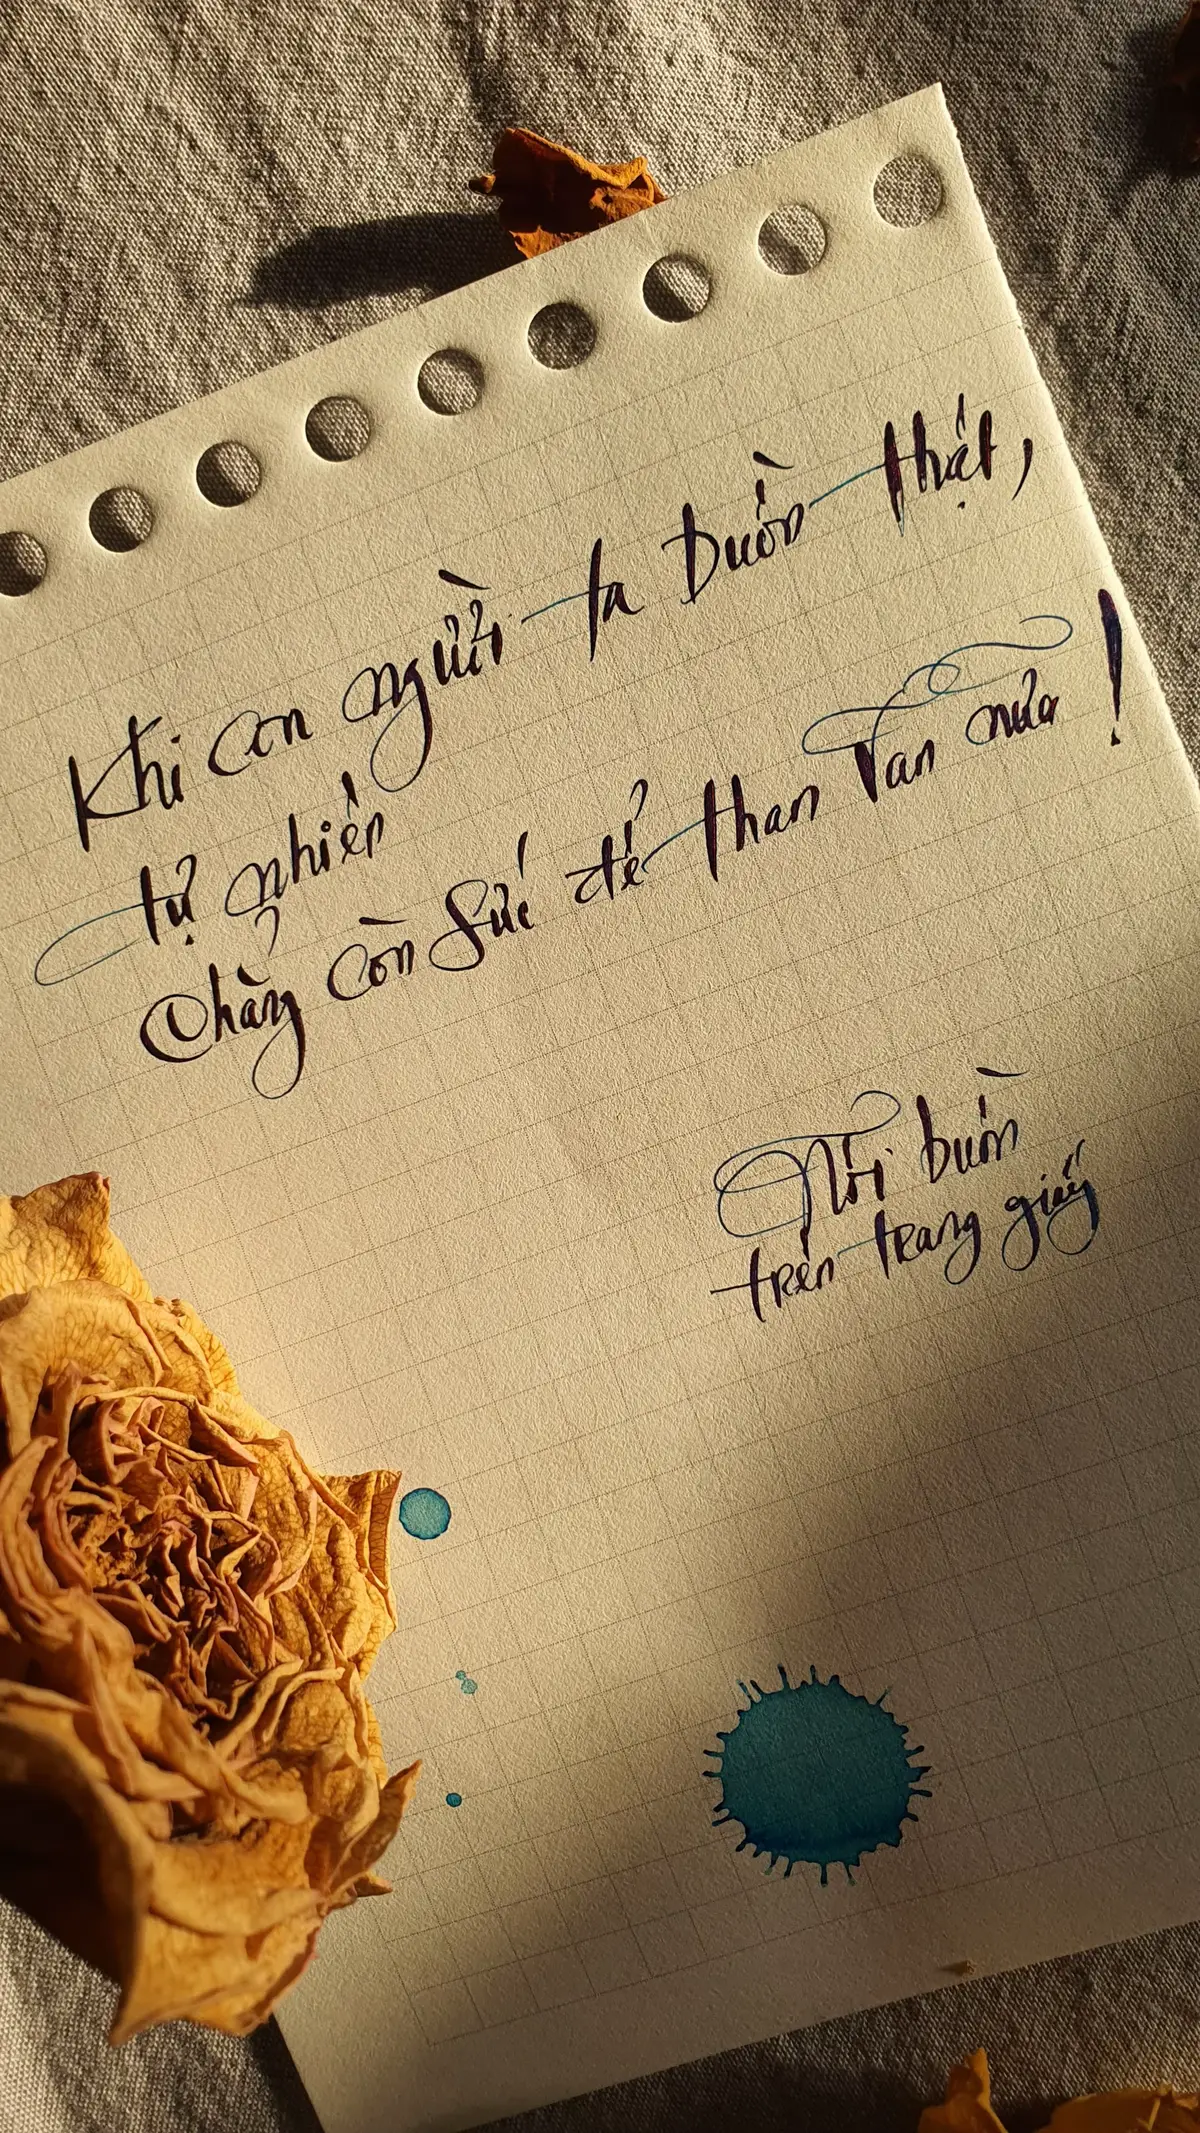 Khi con người ta buồn thật,
tự nhiên
chẳng còn sức để than van nữa!
Nỗi buồn
trên trang giấy